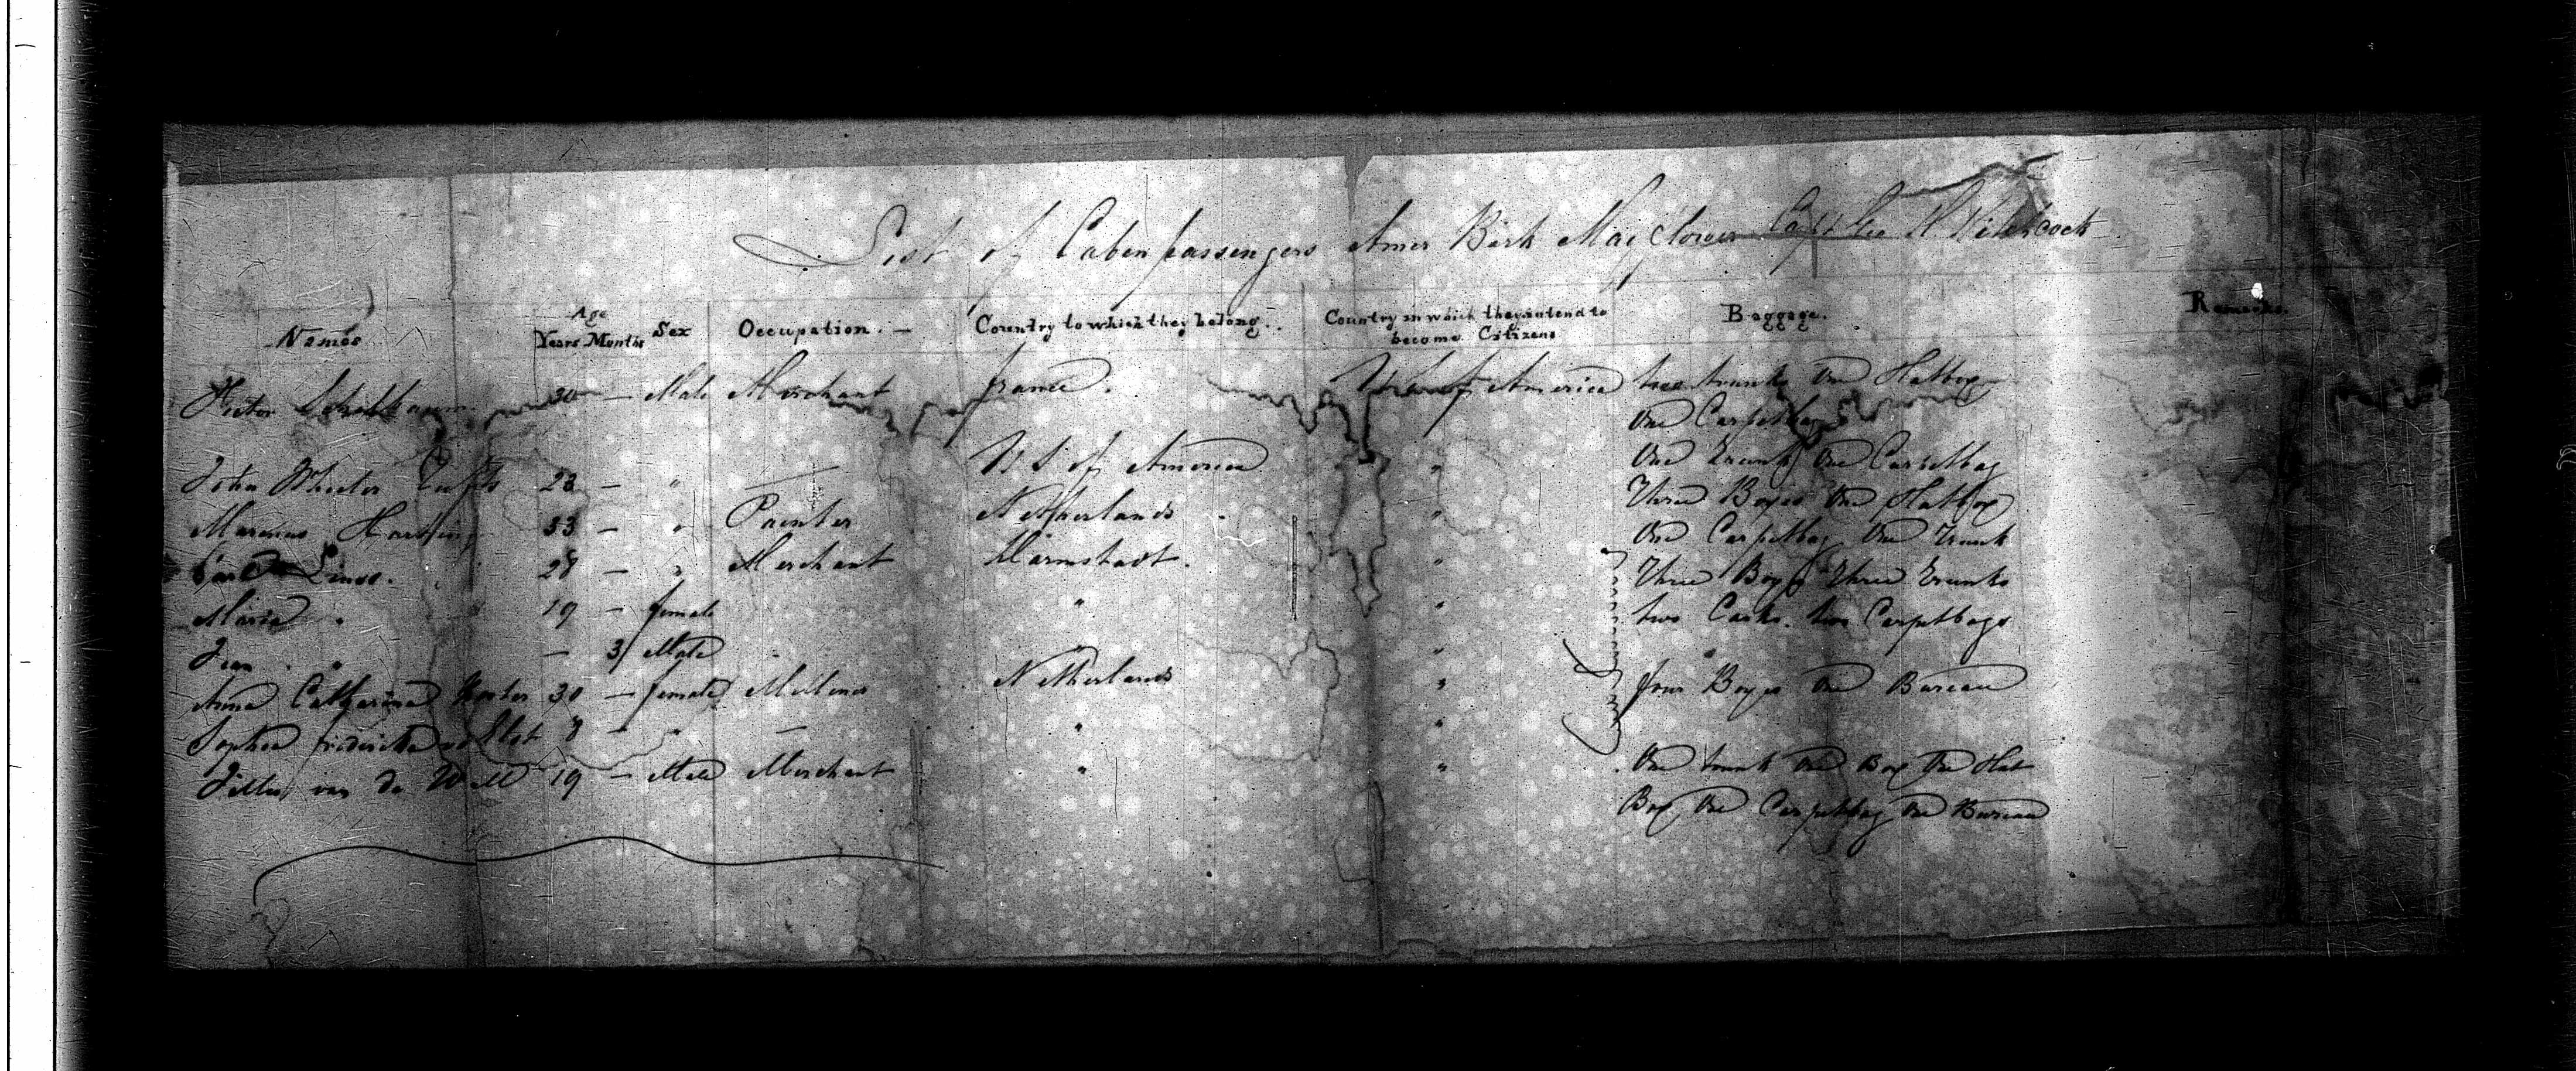 List of Caben passengers Amer Bark Mayflower Capt Geo W Hitchcock
Names Age Years Months Sex Occupation. — Country to which they belong. Country in which they intend to become Citizens Baggage. Remarks.
30 — Male Merchant france. U S of America two trunks One Hatbox
One Carpetbag
John Wheeler Tufts 23 — " — U S of America " One Trunk One Carpetbag
Three Boxes One Hatbox
33 — " Painter Netherlands " One Carpetbag One Trunk
Linse. 28 — " Merchant Darmstadt. " Three Boxes three Trunks
Maria " 19 — female " " two Casks. two Carpetbags
Jean " — 3/ Male "
Anna Catharina 30 — female Netherlands " four Boxes One Bureau
Sophia friderika 8 — " — " "
van de Wall 19 — Male Merchant " " One trunk One Box One Hat
Box One Carpetbag One Bureau